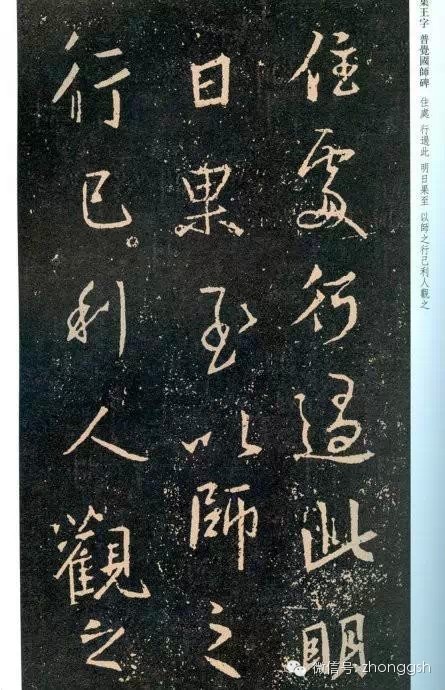 集王字 普覺國師碑 住處 行過此 明日果至 以師之行己利人觀之
住處行過此明
日果至以師之
行己利人觀之
微信号: zhonggsh